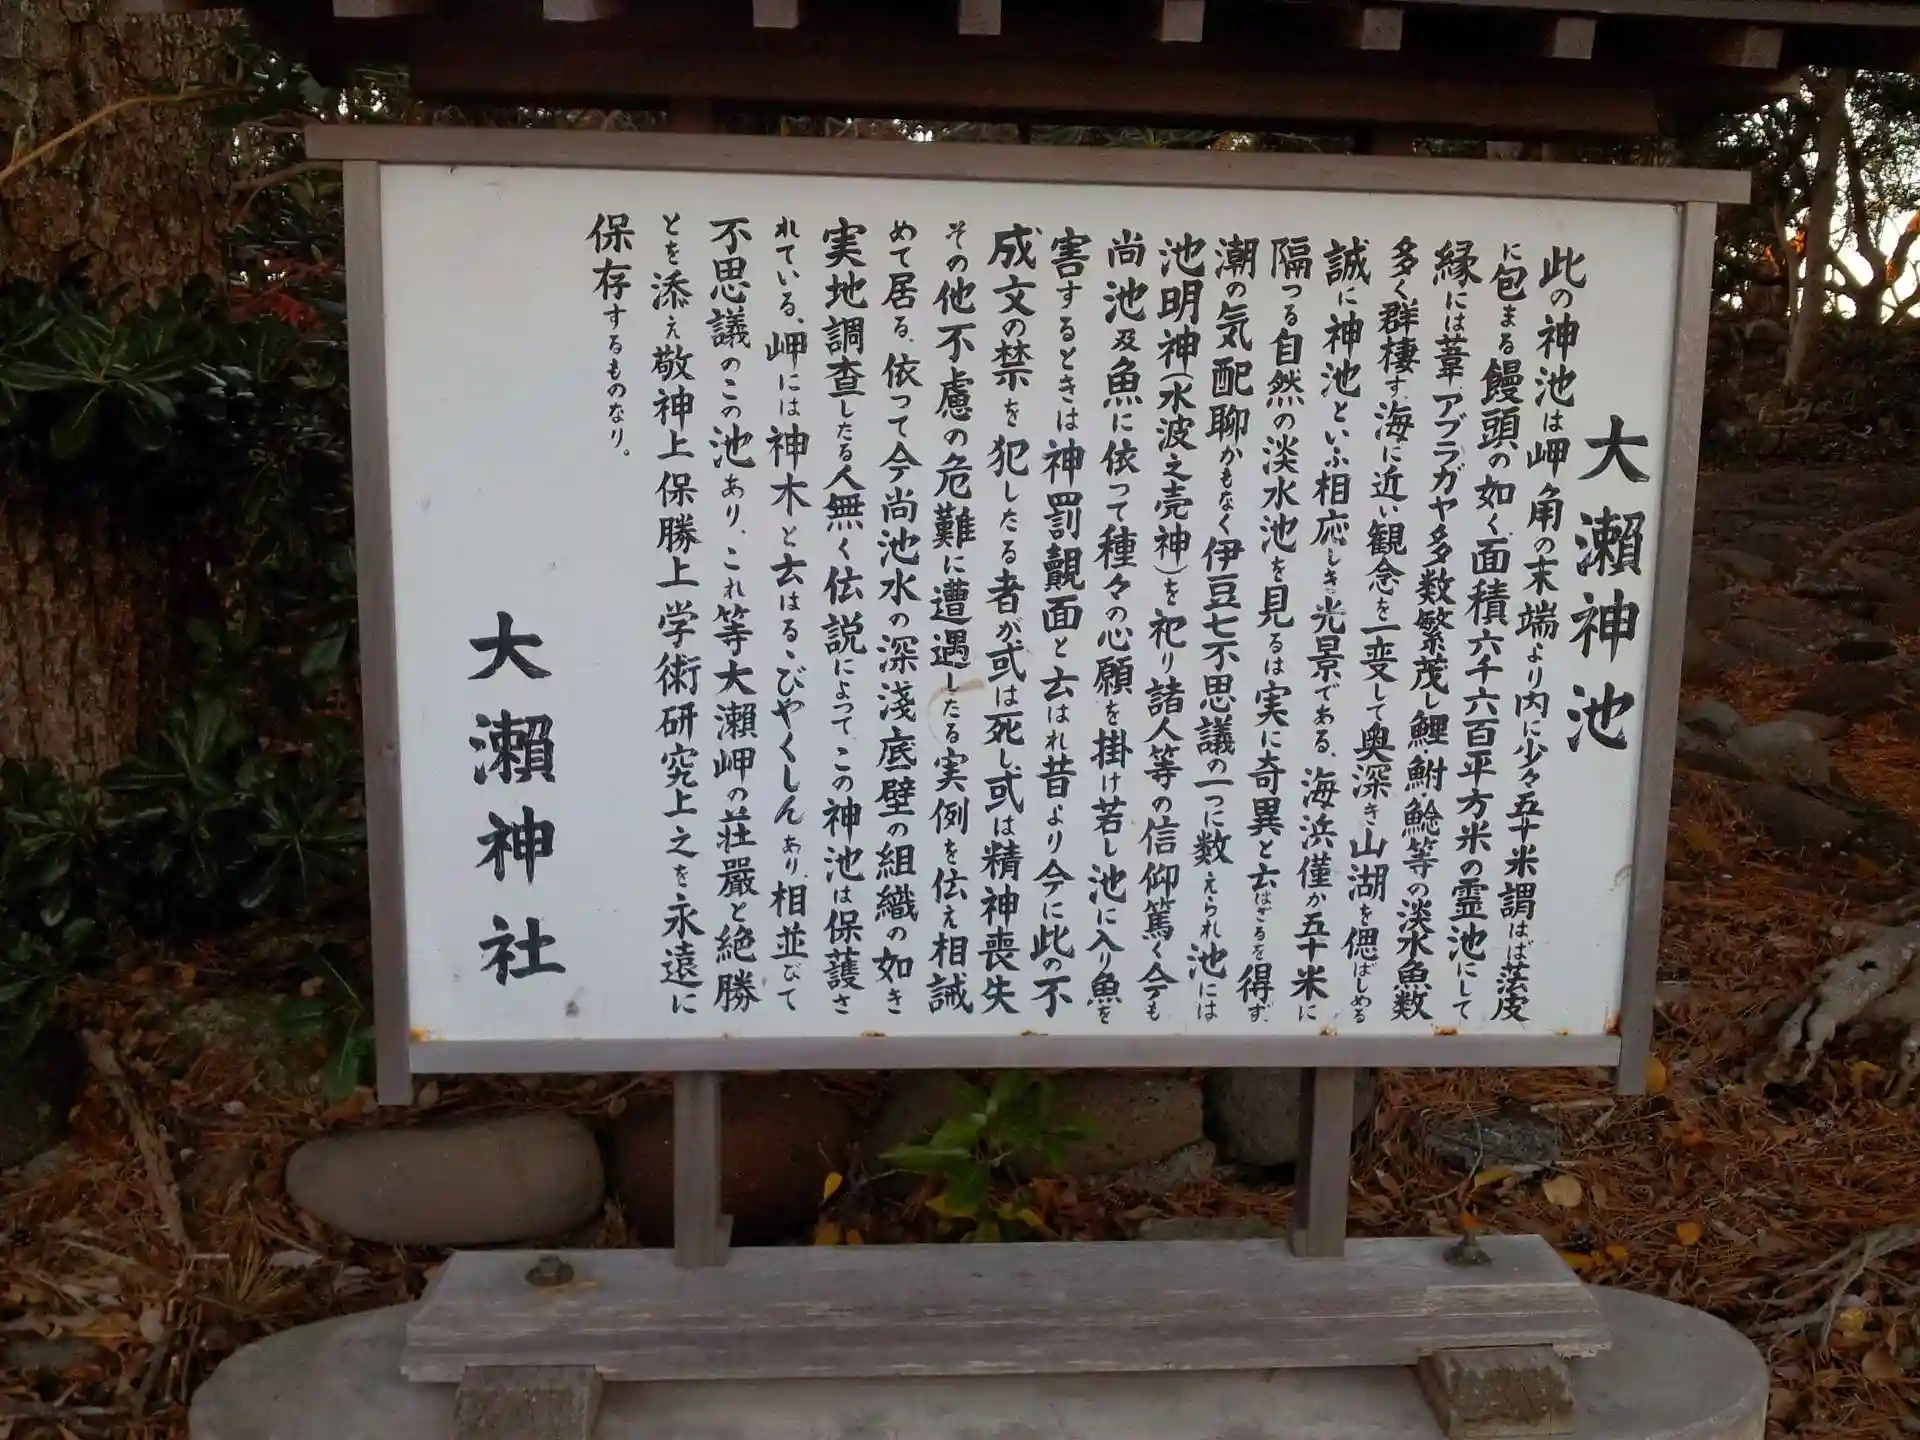 大瀬神池
此の神池は岬角の末端より内に少々五十米謂はば萢皮
に包まる饅頭の如く、面積六千六百平方米の霊池にして
縁には葦、アブラガヤ多数繁茂し鯉、鮒、鯰等の淡水魚数
多く群棲す、海に近い観念を一変して奥深き山湖を偲ばしめる
誠に神池といふ相応しき光景である、海浜僅か五十米に
隔つる自然の淡水池を見るは実に奇異と云はざるを得ず、
潮の気配聊かもなく伊豆七不思議の一つに数えられ池には
池明神(水波之売神)を祀り諸人等の信仰篤く今も
尚池及魚に依って種々の心願を掛け若し池に入り魚を
害するときは神罰覿面と云はれ昔より今に此の不
成文の禁を犯したる者が或は死し、或は精神喪失
その他不慮の危難に遭遇したる実例を伝え相誡
めて居る、依って今尚池水の深淺底壁の組織の如き
実地調査したる人無く伝説によって、この神池は保護さ
れている、岬には神木と云はるゝびやくしんあり、相並びて
不思議のこの池あり、これ等大瀬岬の荘嚴と絶勝
とを添え敬神上保勝上学術研究上之を永遠に
保存するものなり。
大瀬神社